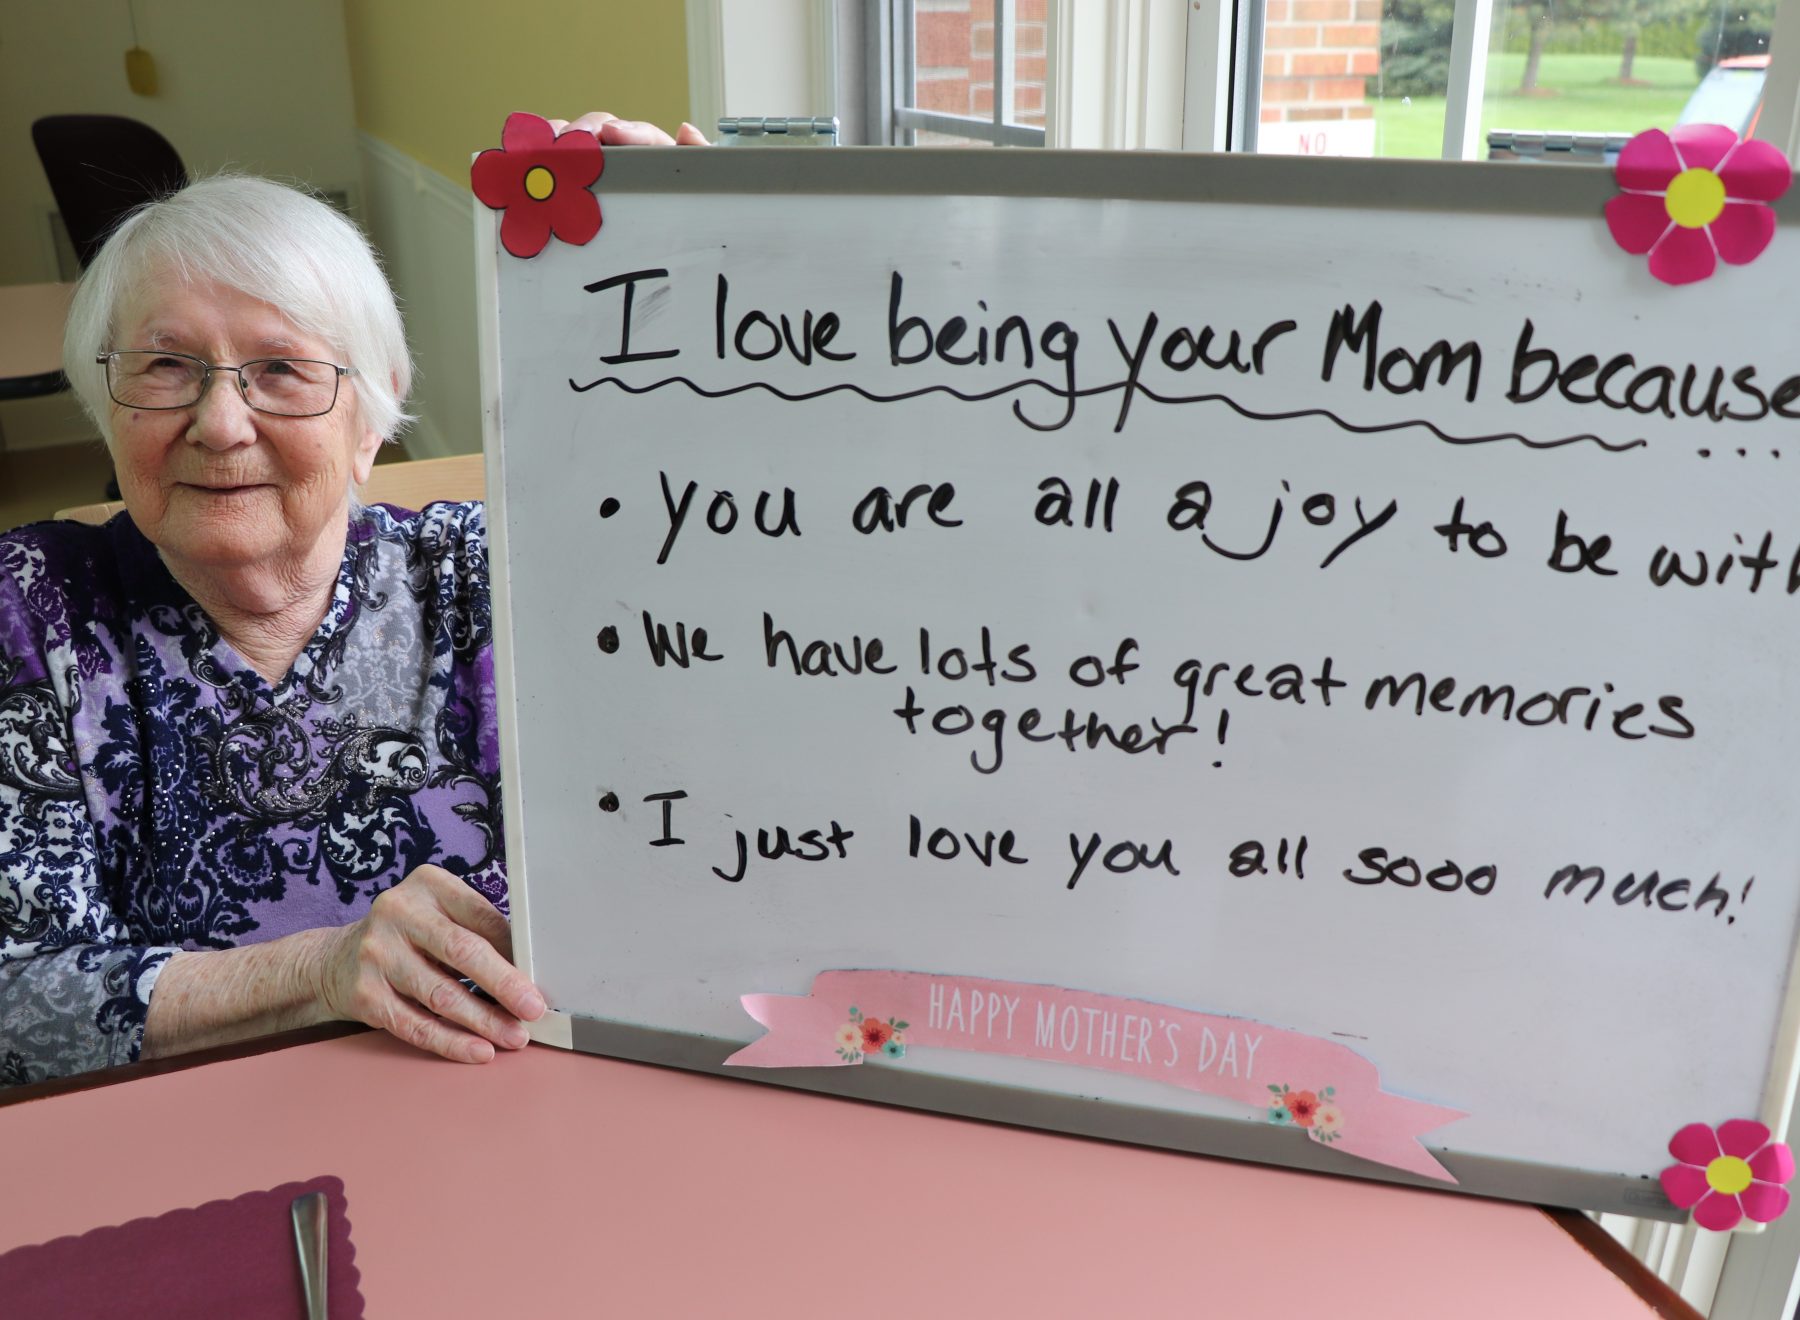 NO
I love being your Mom because
....
• you are all a joy to be with
• We have lots of great memories
together!
• I just love you all sooo much!
HAPPY MOTHER'S DAY